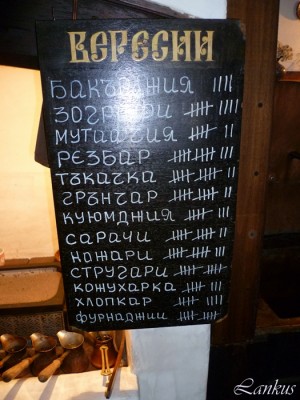 ВЕРЕСИИ
БАКЪРДЖИЯ
ЗОГРАФИ
МУТАФЧИЯ
РЕЗБАР
ТЪКАЧКА
ГРЪНЧАР
КУЮМДЖИЯ
САРАЧИ
НОЖАРИ
СТРУГАРИ
КОЖУХАРКА
ХЛОПКАР
ФУРНАДЖИИ
Lankus